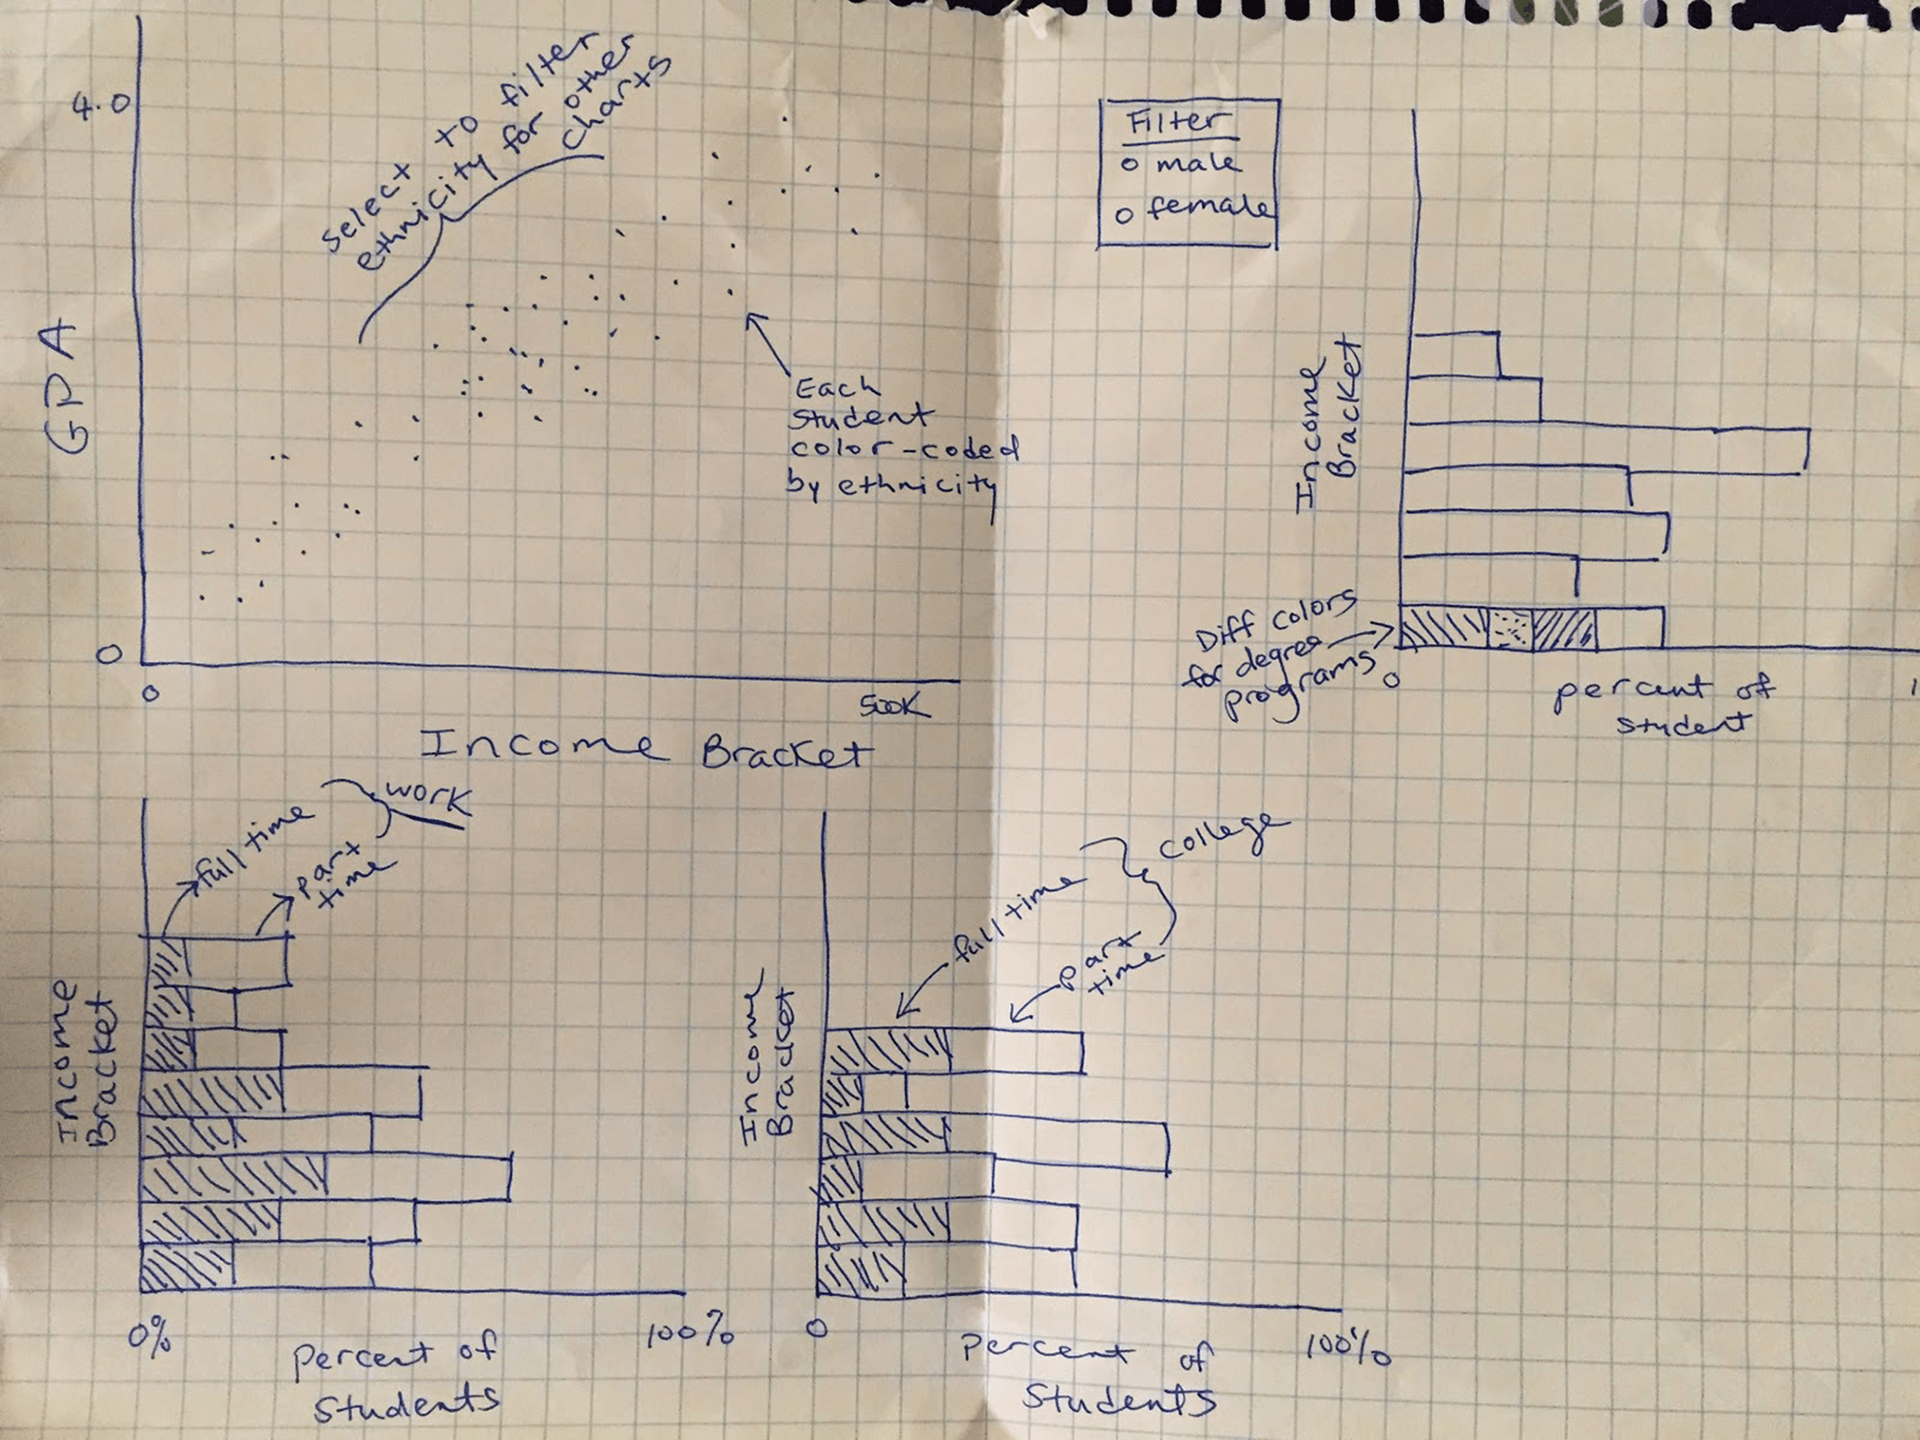 4.0
GPA
0
0
500K
Income Bracket
Select to filter
ethnicity for other
charts
Each
student
color-coded
by ethnicity
Filter
o male
o female
Income
Bracket
Diff colors
for degree
programs
0
percent of
student
1
full time
part
time
work
Income
Bracket
0%
100%
percent of
students
full time
part
time
college
Income
Bracket
0
100%
Percent of
Students